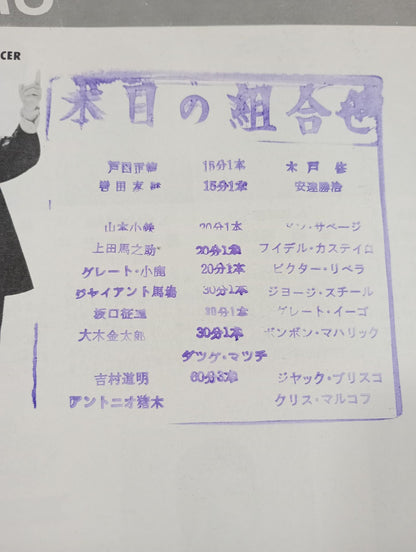 CER
本日の組合せ
戸口正徳 15分1本 木戸修
曽田友継 15分1本 安達勝治
山本小鉄 20分1本 ドン・サベージ
上田馬之助 20分1本 フイデル・カステイロ
グレート・小鹿 20分1本 ビクター・リベラ
ジャイアント馬場 30分1本 ジョージ・スチール
坂口征二 30分1本 グレート・イーゴ
大木金太郎 30分1本 ボンボン・マハリック
タッグ・マッチ
吉村道明 60分3本 ジヤック・ブリスコ
アントニオ猪木 クリス・マルコフ